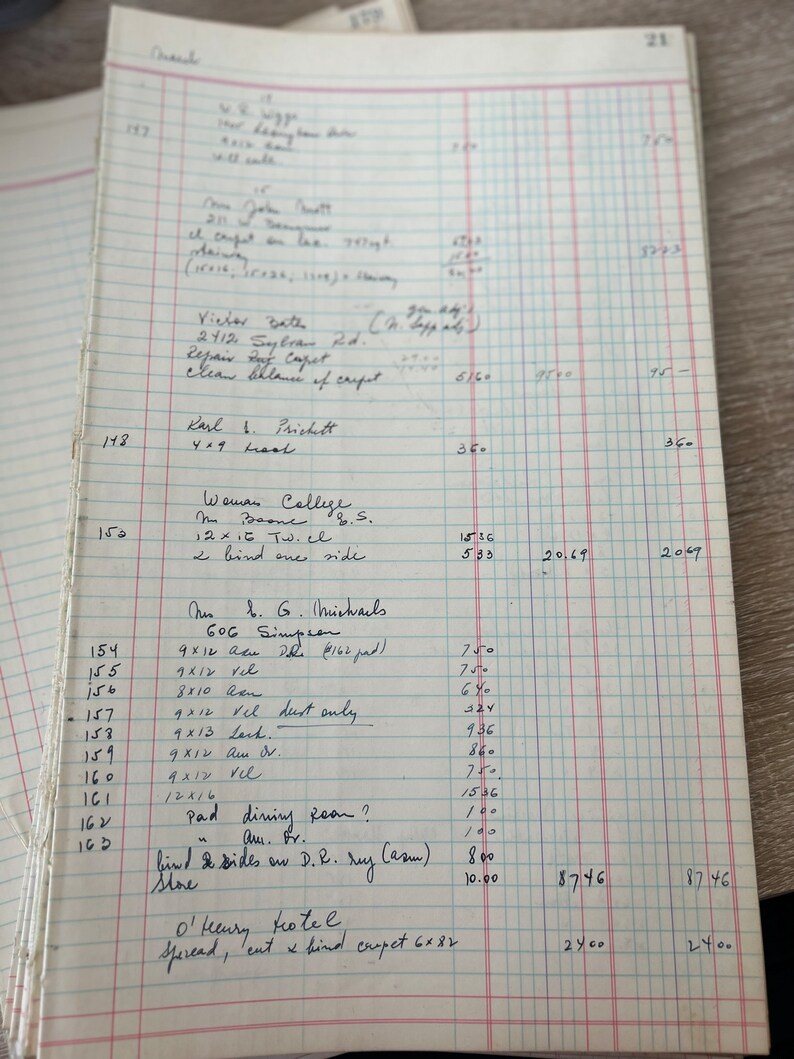 21
March
15
147
9x12
750 750
15
Mrs John Mott
211 W.
cl carpet on loc.
stairway
(15x16, 15x26, ) + stairway
8223
Victor Bates gen adj's
2412 Sylvan Rd. (N. Supp adj)
Repair Rug Carpet
Clean balance of carpet 5160 9500 95 —
Karl E. Prickett
148 4x9 360 360
Womans College
Mr Boone E.S.
12 x 15 Tw. cl 1536
& bind one side 533 20.69 2069
Mrs E. G. Michaels
606 Simpson
154 9x12 axm D.R. (#162 pad) 750
155 9x12 Vel 750
156 8x10 axm 640
157 9x12 Vel dust only 324
158 9x13 936
159 9x12 Am Or. 860
160 9x12 Vel 750
161 12x16 1536
162 Pad dining Room? 100
163 " Am. Or. 100
bind 2 sides on D.R. rug (axm) 800
Store 10.00 8746 8746
O'Henry Hotel
Spread, cut & bind carpet 6x82 2400 2400